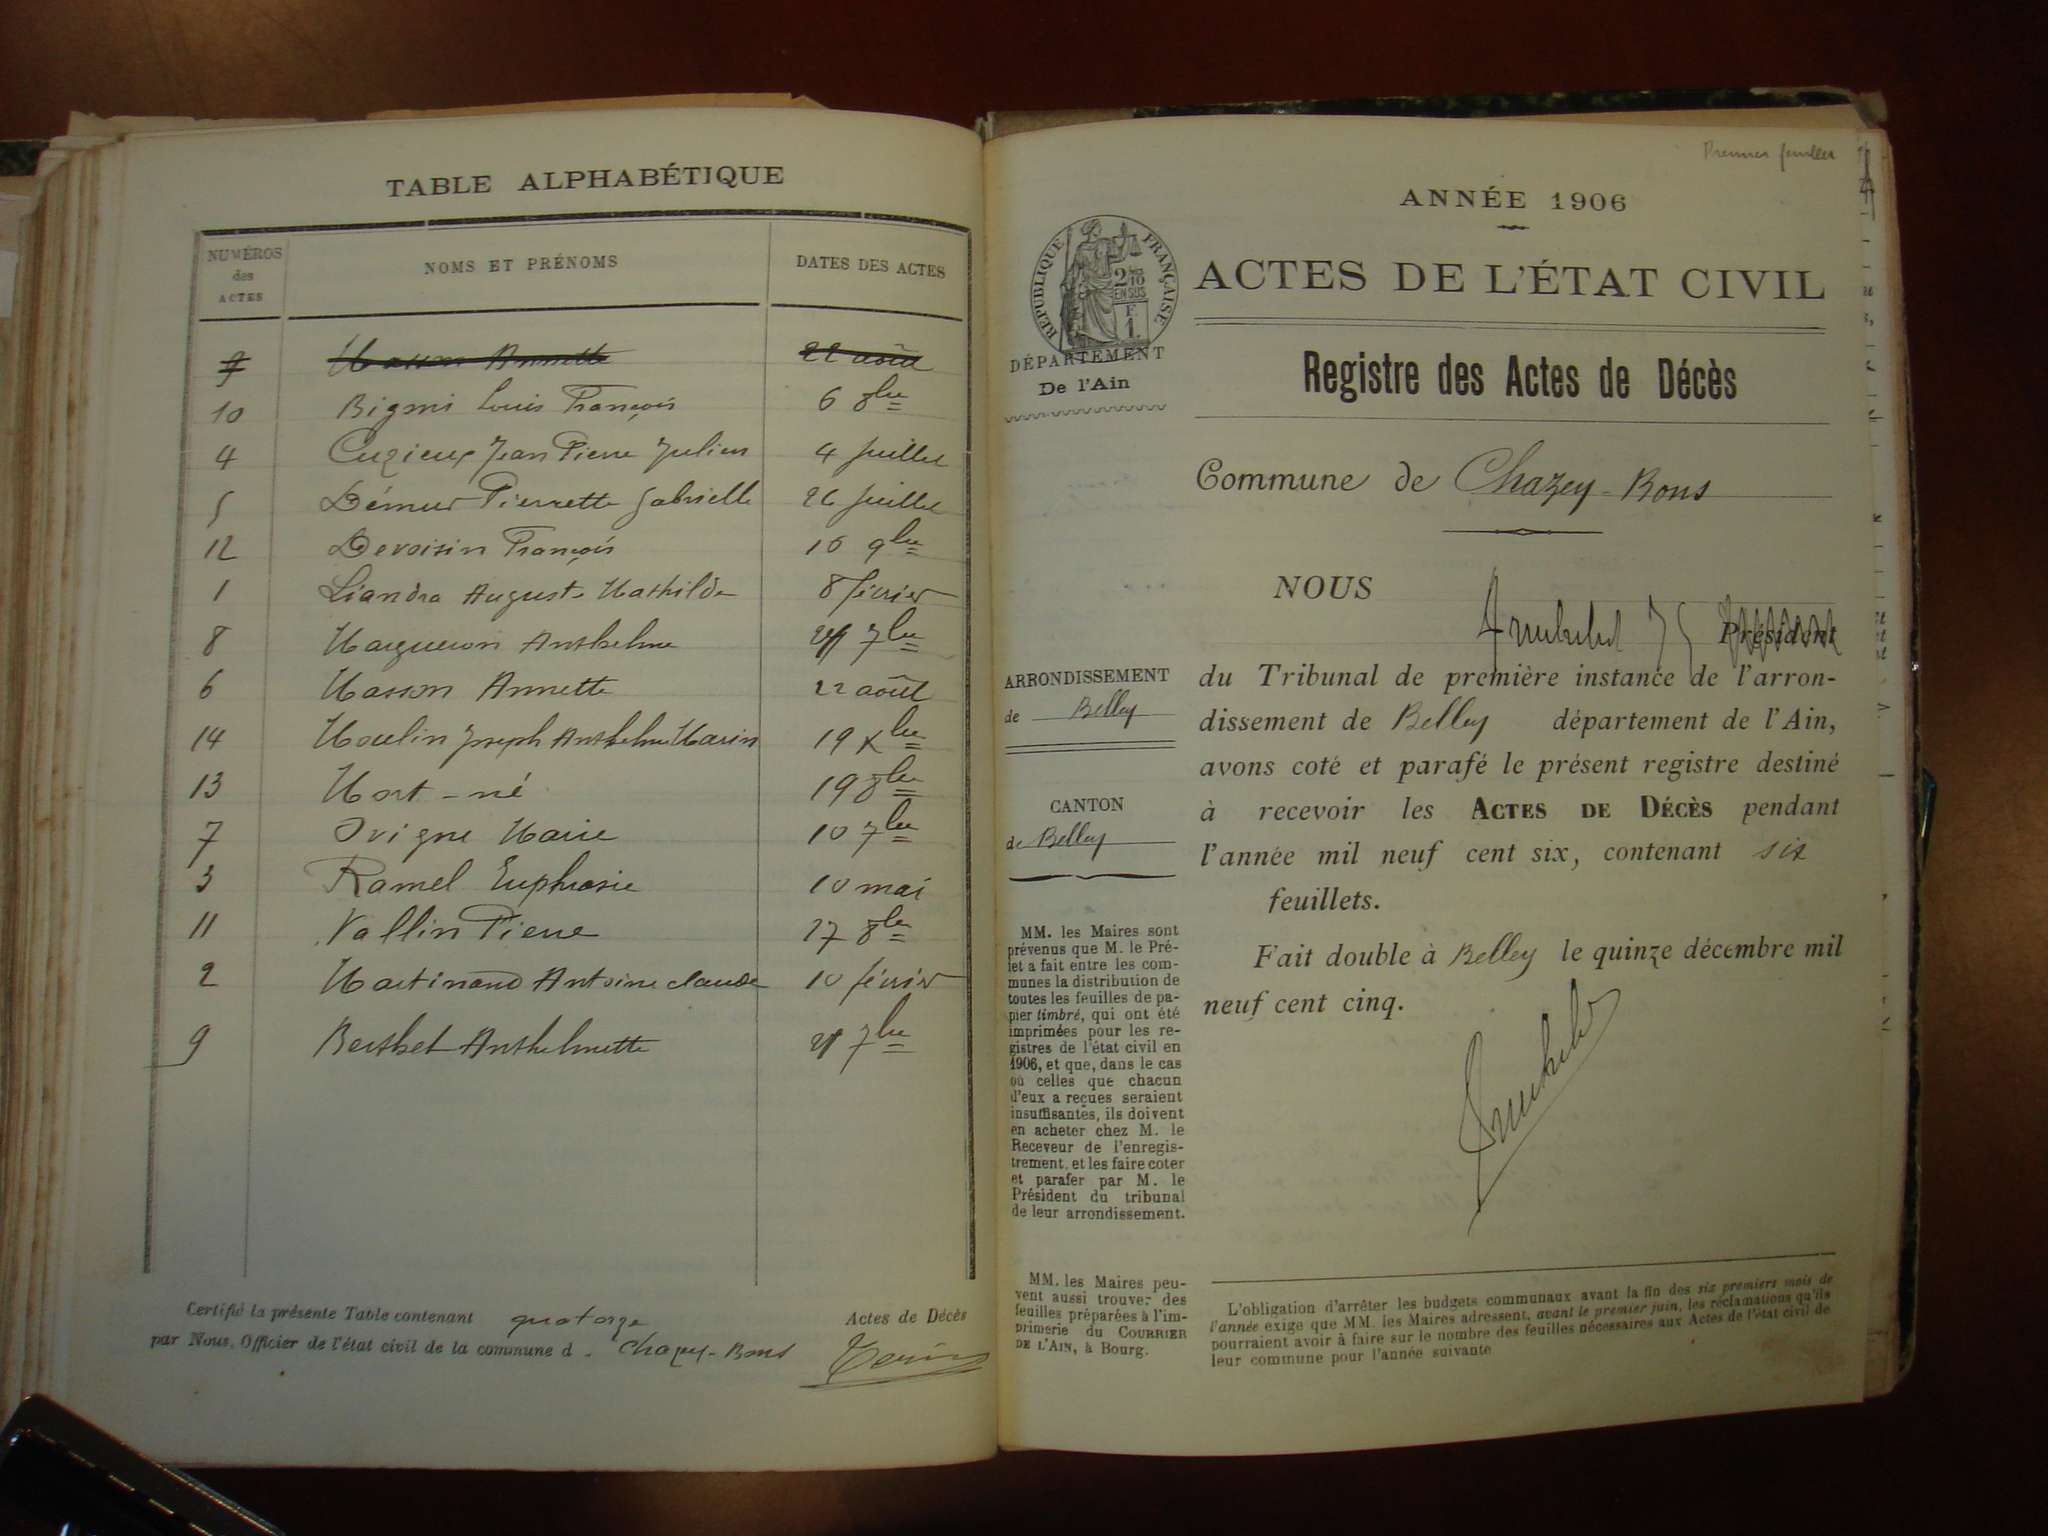 TABLE ALPHABÉTIQUE
NUMÉROS des ACTES NOMS ET PRÉNOMS DATES DES ACTES
Masson Annette 22 août
10 Bigoni Louis François 6 8bre
4 Cuzieux Jean Pierre Julien 4 Juillet
5 Démur Pierrette Gabrielle 26 Juillet
12 Devoisin François 16 9bre
1 Liandra Auguste Mathilde 8 février
8 Margueron Anthelme 7bre
6 Masson Annette 22 août
14 Moulin Joseph Anthelme Marin 19 Xbre
13 Mort-né 19 8bre
7 Ovigne Marie 10 7bre
3 Ramel Euphrasie 10 mai
11 Vallin Pierre 27 8bre
2 Martinand Antoine claude 10 février
9 Berthet Anthelmette 7bre
Certifié la présente Table contenant quatorze Actes de Décès
par Nous, Officier de l'état civil de la commune d Chazey-Bons
Premier feuillet
ANNÉE 1906
RÉPUBLIQUE FRANÇAISE
2/10
EN SUS
F
1.
DÉPARTEMENT
De l'Ain
ACTES DE L'ÉTAT CIVIL
Registre des Actes de Décès
Commune de Chazey-Bons
NOUS
Président
du Tribunal de première instance de l'arron-
dissement de Belley département de l'Ain,
avons coté et parafé le présent registre destiné
à recevoir les ACTES DE DÉCÈS pendant
l'année mil neuf cent six, contenant six
feuillets.
Fait double à Belley le quinze décembre mil
neuf cent cinq.
ARRONDISSEMENT
de Belley
CANTON
de Belley
MM. les Maires sont
prévenus que M. le Pré-
fet a fait entre les com-
munes la distribution de
toutes les feuilles de pa-
pier timbré, qui ont été
imprimées pour les re-
gistres de l'état civil en
1906, et que, dans le cas
où celles que chacun
d'eux a reçues seraient
insuffisantes, ils doivent
en acheter chez M. le
Receveur de l'enregis-
trement, et les faire coter
et parafer par M. le
Président du tribunal
de leur arrondissement.
MM. les Maires peu-
vent aussi trouver des
feuilles préparées à l'im-
primerie du COURRIER
DE L'AIN, à Bourg.
L'obligation d'arrêter les budgets communaux avant la fin des six premiers mois de
l'année exige que MM. les Maires adressent, avant le premier juin, les réclamations qu'ils
pourraient avoir à faire sur le nombre des feuilles nécessaires aux Actes de l'état civil de
leur commune pour l'année suivante